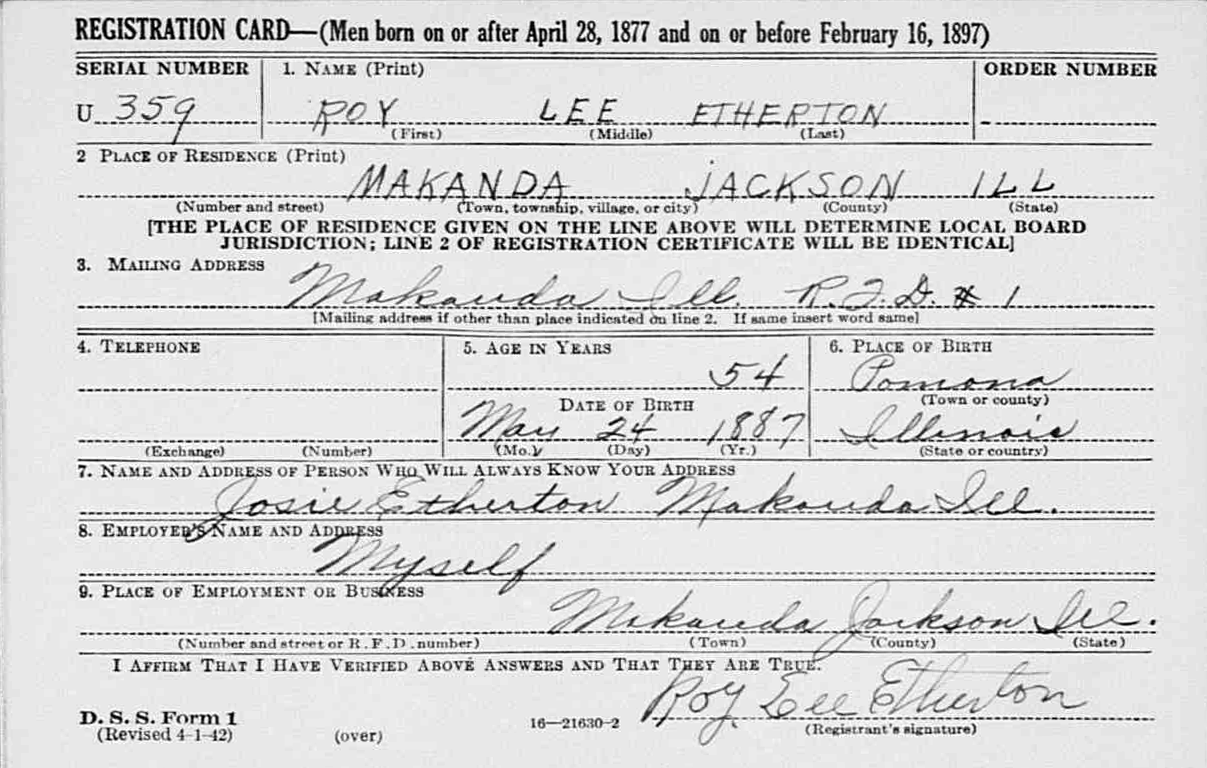 REGISTRATION CARD—(Men born on or after April 28, 1877 and on or before February 16, 1897)
SERIAL NUMBER 1. NAME (Print) ORDER NUMBER
U 359 ROY LEE ETHERTON
(First) (Middle) (Last)
2 PLACE OF RESIDENCE (Print)
MAKANDA JACKSON ILL
(Number and street) (Town, township, village, or city) (County) (State)
[THE PLACE OF RESIDENCE GIVEN ON THE LINE ABOVE WILL DETERMINE LOCAL BOARD
JURISDICTION; LINE 2 OF REGISTRATION CERTIFICATE WILL BE IDENTICAL]
3. MAILING ADDRESS
Makanda Ill. R.F.D. # 1
[Mailing address if other than place indicated on line 2. If same insert word same]
4. TELEPHONE 5. AGE IN YEARS 6. PLACE OF BIRTH
54 Pomona
DATE OF BIRTH (Town or county)
May 24 1887 Illinois
(Exchange) (Number) (Mo.) (Day) (Yr.) (State or country)
7. NAME AND ADDRESS OF PERSON WHO WILL ALWAYS KNOW YOUR ADDRESS
Josie Etherton Makanda Ill.
8. EMPLOYER'S NAME AND ADDRESS
Myself
9. PLACE OF EMPLOYMENT OR BUSINESS
Makanda Jackson Ill.
(Number and street or R. F. D. number) (Town) (County) (State)
I AFFIRM THAT I HAVE VERIFIED ABOVE ANSWERS AND THAT THEY ARE TRUE.
Roy Lee Etherton
D. S. S. Form 1 16—21630-2 (Registrant's signature)
(Revised 4-1-42) (over)